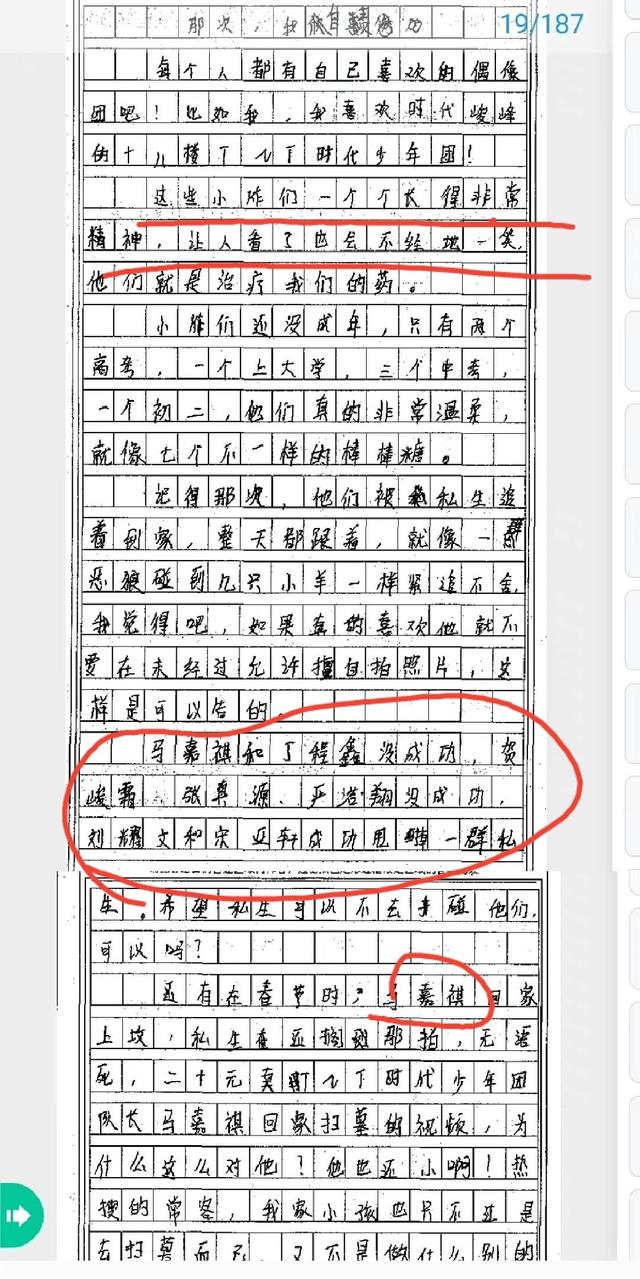 19/187
那次，我
每个人都有自己喜欢的偶像
团吧！比如我，我喜欢时代峻峰
的十八楼丁儿丁时代少年团！
这些小炸们一个个长得非常
精神，让人看了也会不经地一笑，
他们就是治疗我们的药。
小炸们还没成年，只有两个
高考，一个上大学，三个中考，
一个初二，他们真的非常温柔，
就像七个不一样的棒棒糖。
记得那次，他们被私生追
着到家，整天都跟着，就像一群
恶狼碰到几只小羊一样紧追不舍，
我觉得吧，如果真的喜欢他就不
要在未经过允许擅自拍照片，这
样是可以告的，
马嘉祺和丁程鑫没成功，贺
峻霖、张真源、严浩翔没成功，
刘耀文和宋亚轩成功甩掉一群私
生。希望私生可以不去来碰他们，
可以吗？
还有在春节时，马嘉祺回家
上坟，私生在那拍，无语
死，二十元卖儿丁时代少年团
队长马嘉祺回家扫墓的视频，为
什么这么对他？他也还小啊！热
搜的常客，我家小孩也只不过是
去扫墓而已，又不是做什么别的